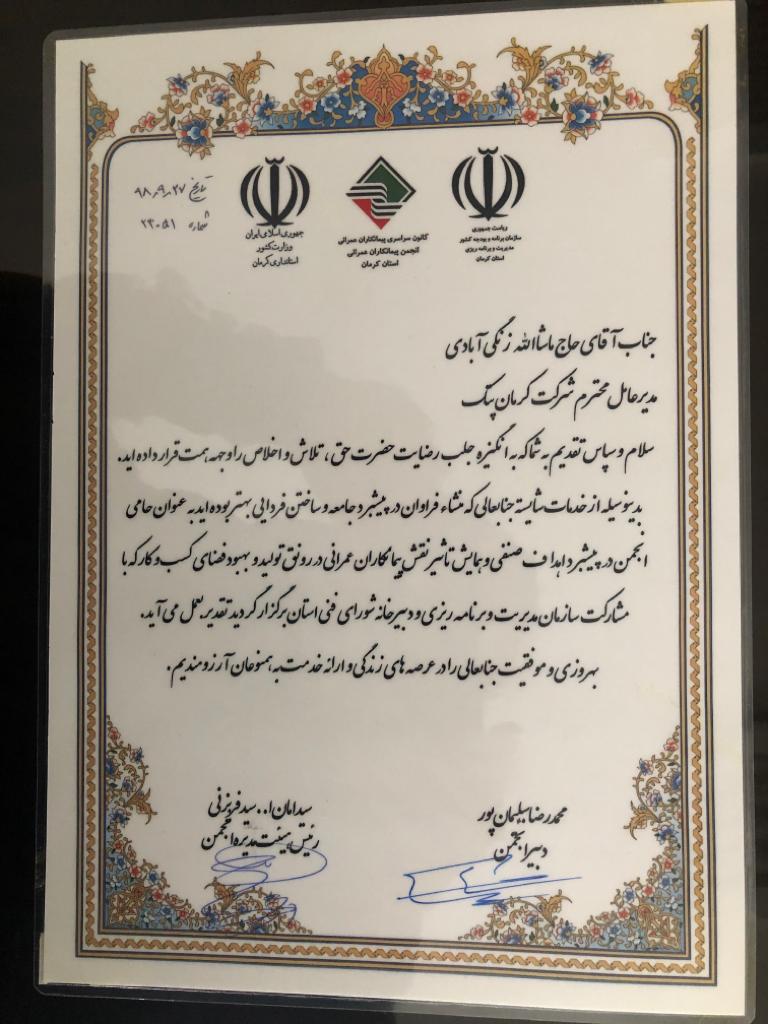 ریاست جمهوری
سازمان برنامه و بودجه کشور
مدیریت و برنامه ریزی
استان کرمان
کانون سراسری پیمانکاران عمرانی
انجمن پیمانکاران عمرانی
استان کرمان
جمهوری اسلامی ایران
وزارت کشور
استانداری کرمان
تاریخ ۹۸،۹،۲۷
شماره
جناب آقای حاج ماشاالله زنگی آبادی
مدیرعامل محترم شرکت کرمان پیک
سلام و سپاس تقدیم به شما که به انگیزه جلب رضایت حضرت حق، تلاش و اخلاص را وجهه همت قرار داده اید.
بدینوسیله از خدمات شایسته جنابعالی که منشاء فراوان در پیشبرد جامعه و ساختن فردایی بهتر بوده اید به عنوان حامی
انجمن در پیشبرد اهداف صنفی و همایش تاثیر نقش پیمانکاران عمرانی در رونق تولید و بهبود فضای کسب و کار که با
مشارکت سازمان مدیریت و برنامه ریزی و دبیرخانه شورای فنی استان برگزار گردید تقدیر بعمل می آید.
بهروزی و موفقیت جنابعالی را در عرصه های زندگی و ارائه خدمت به همنوعان آرزومندیم.
محمدرضا سلیمان پور
دبیر انجمن
سید امان ا... سید فرزنی
رئیس هیئت مدیره انجمن